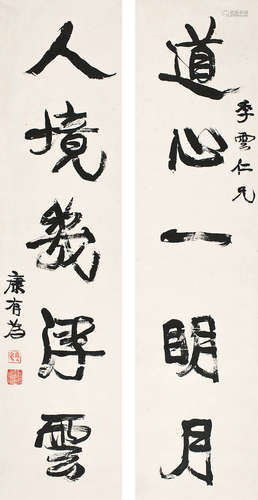 道心一明月
季雲仁兄
人境幾浮雲
康有為